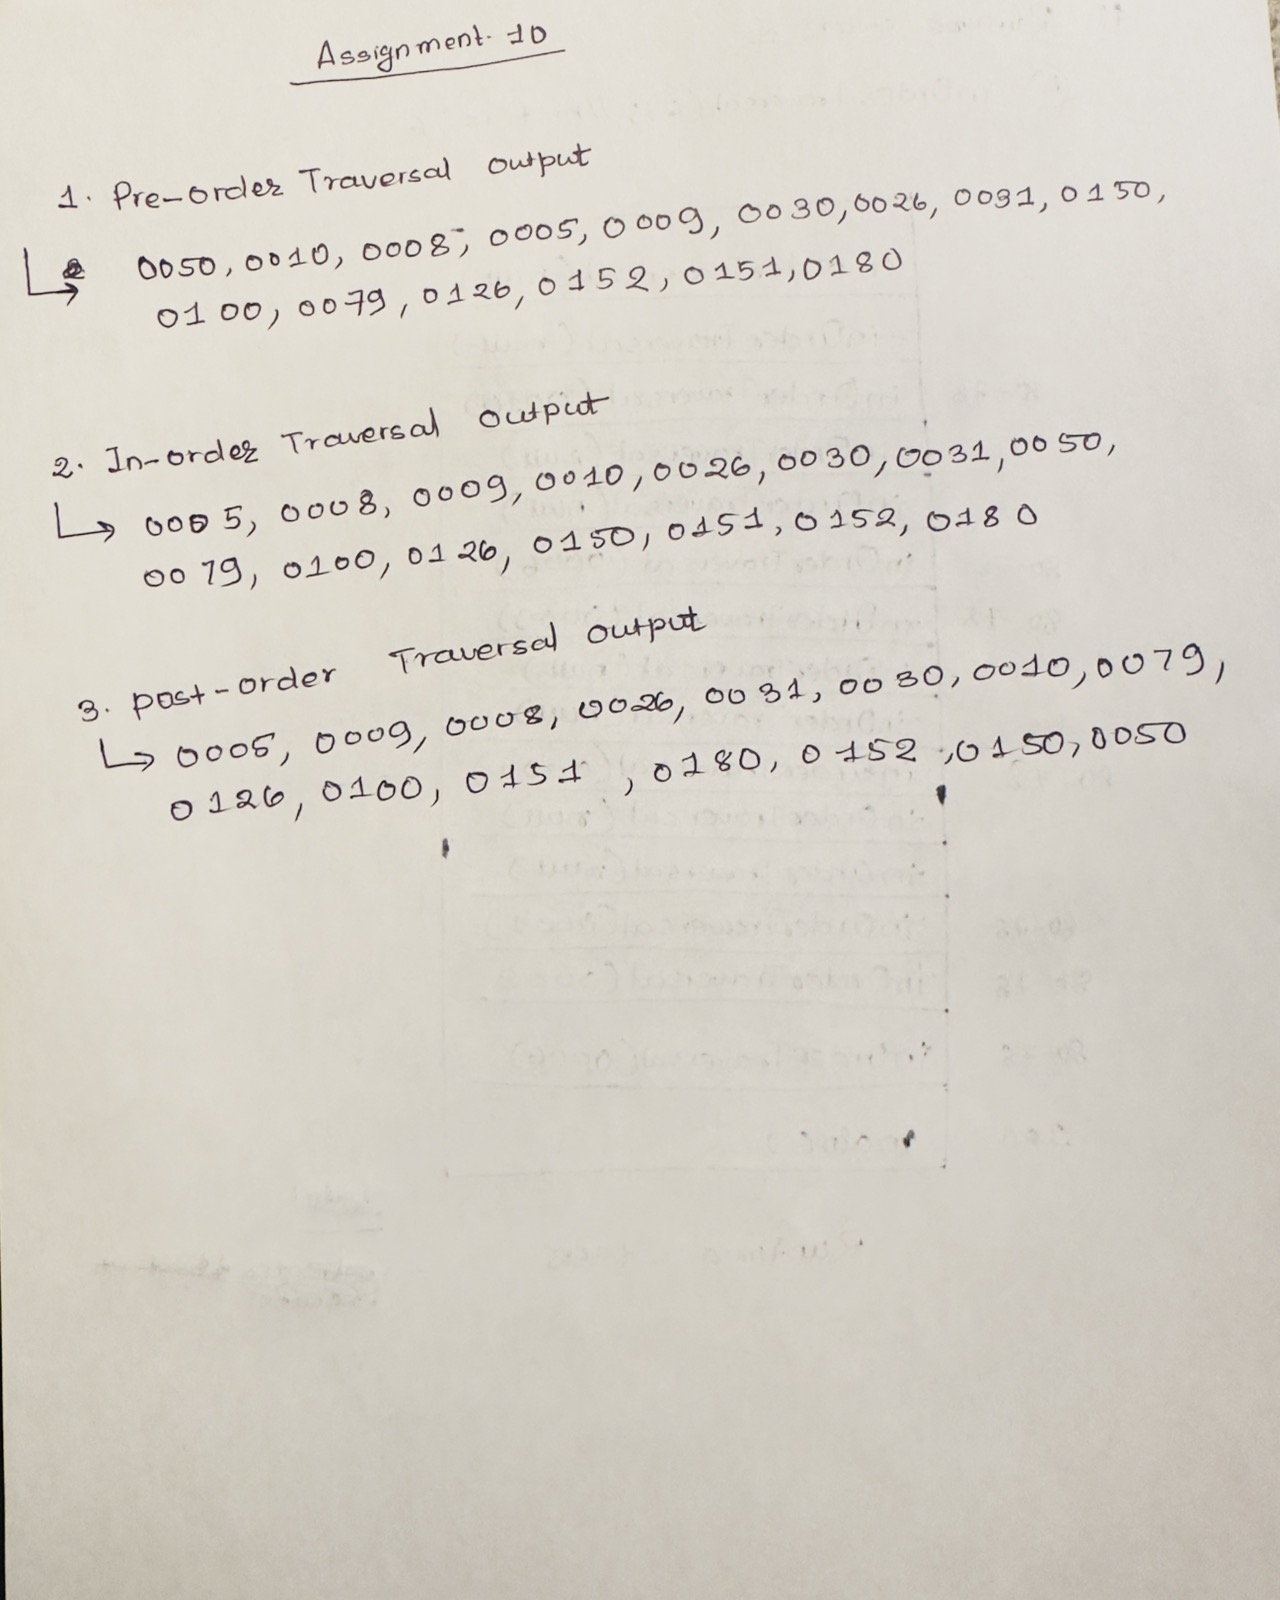 Assignment- 10
1. Pre-order Traversal output
0050, 0010, 0008, 0005, 0009, 0030, 0026, 0031, 0150,
0100, 0079, 0126, 0152, 0151, 0180
2. In-order Traversal output
0005, 0008, 0009, 0010, 0026, 0030, 0031, 0050,
0079, 0100, 0126, 0150, 0151, 0152, 0180
3. post-order Traversal output
0005, 0009, 0008, 0026, 0031, 0030, 0010, 0079,
0126, 0100, 0151, 0180, 0152, 0150, 0050